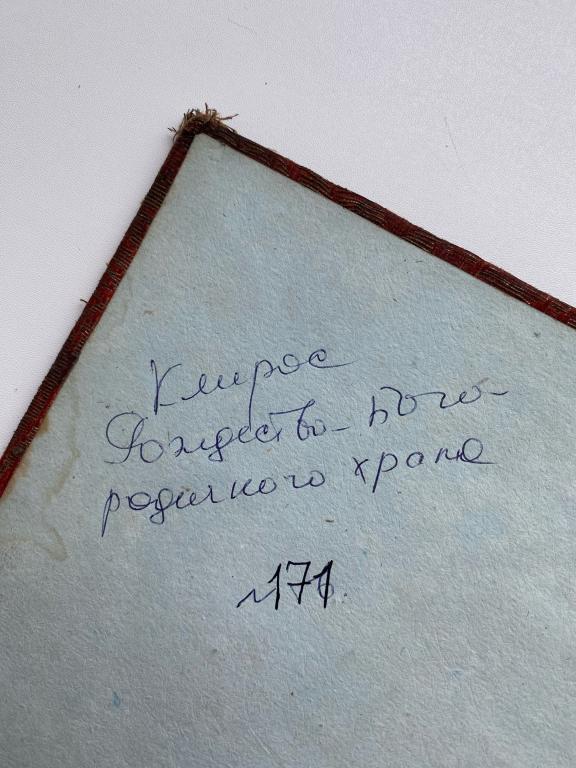 Клирос
Рождество-Бого-
родичного храма
171